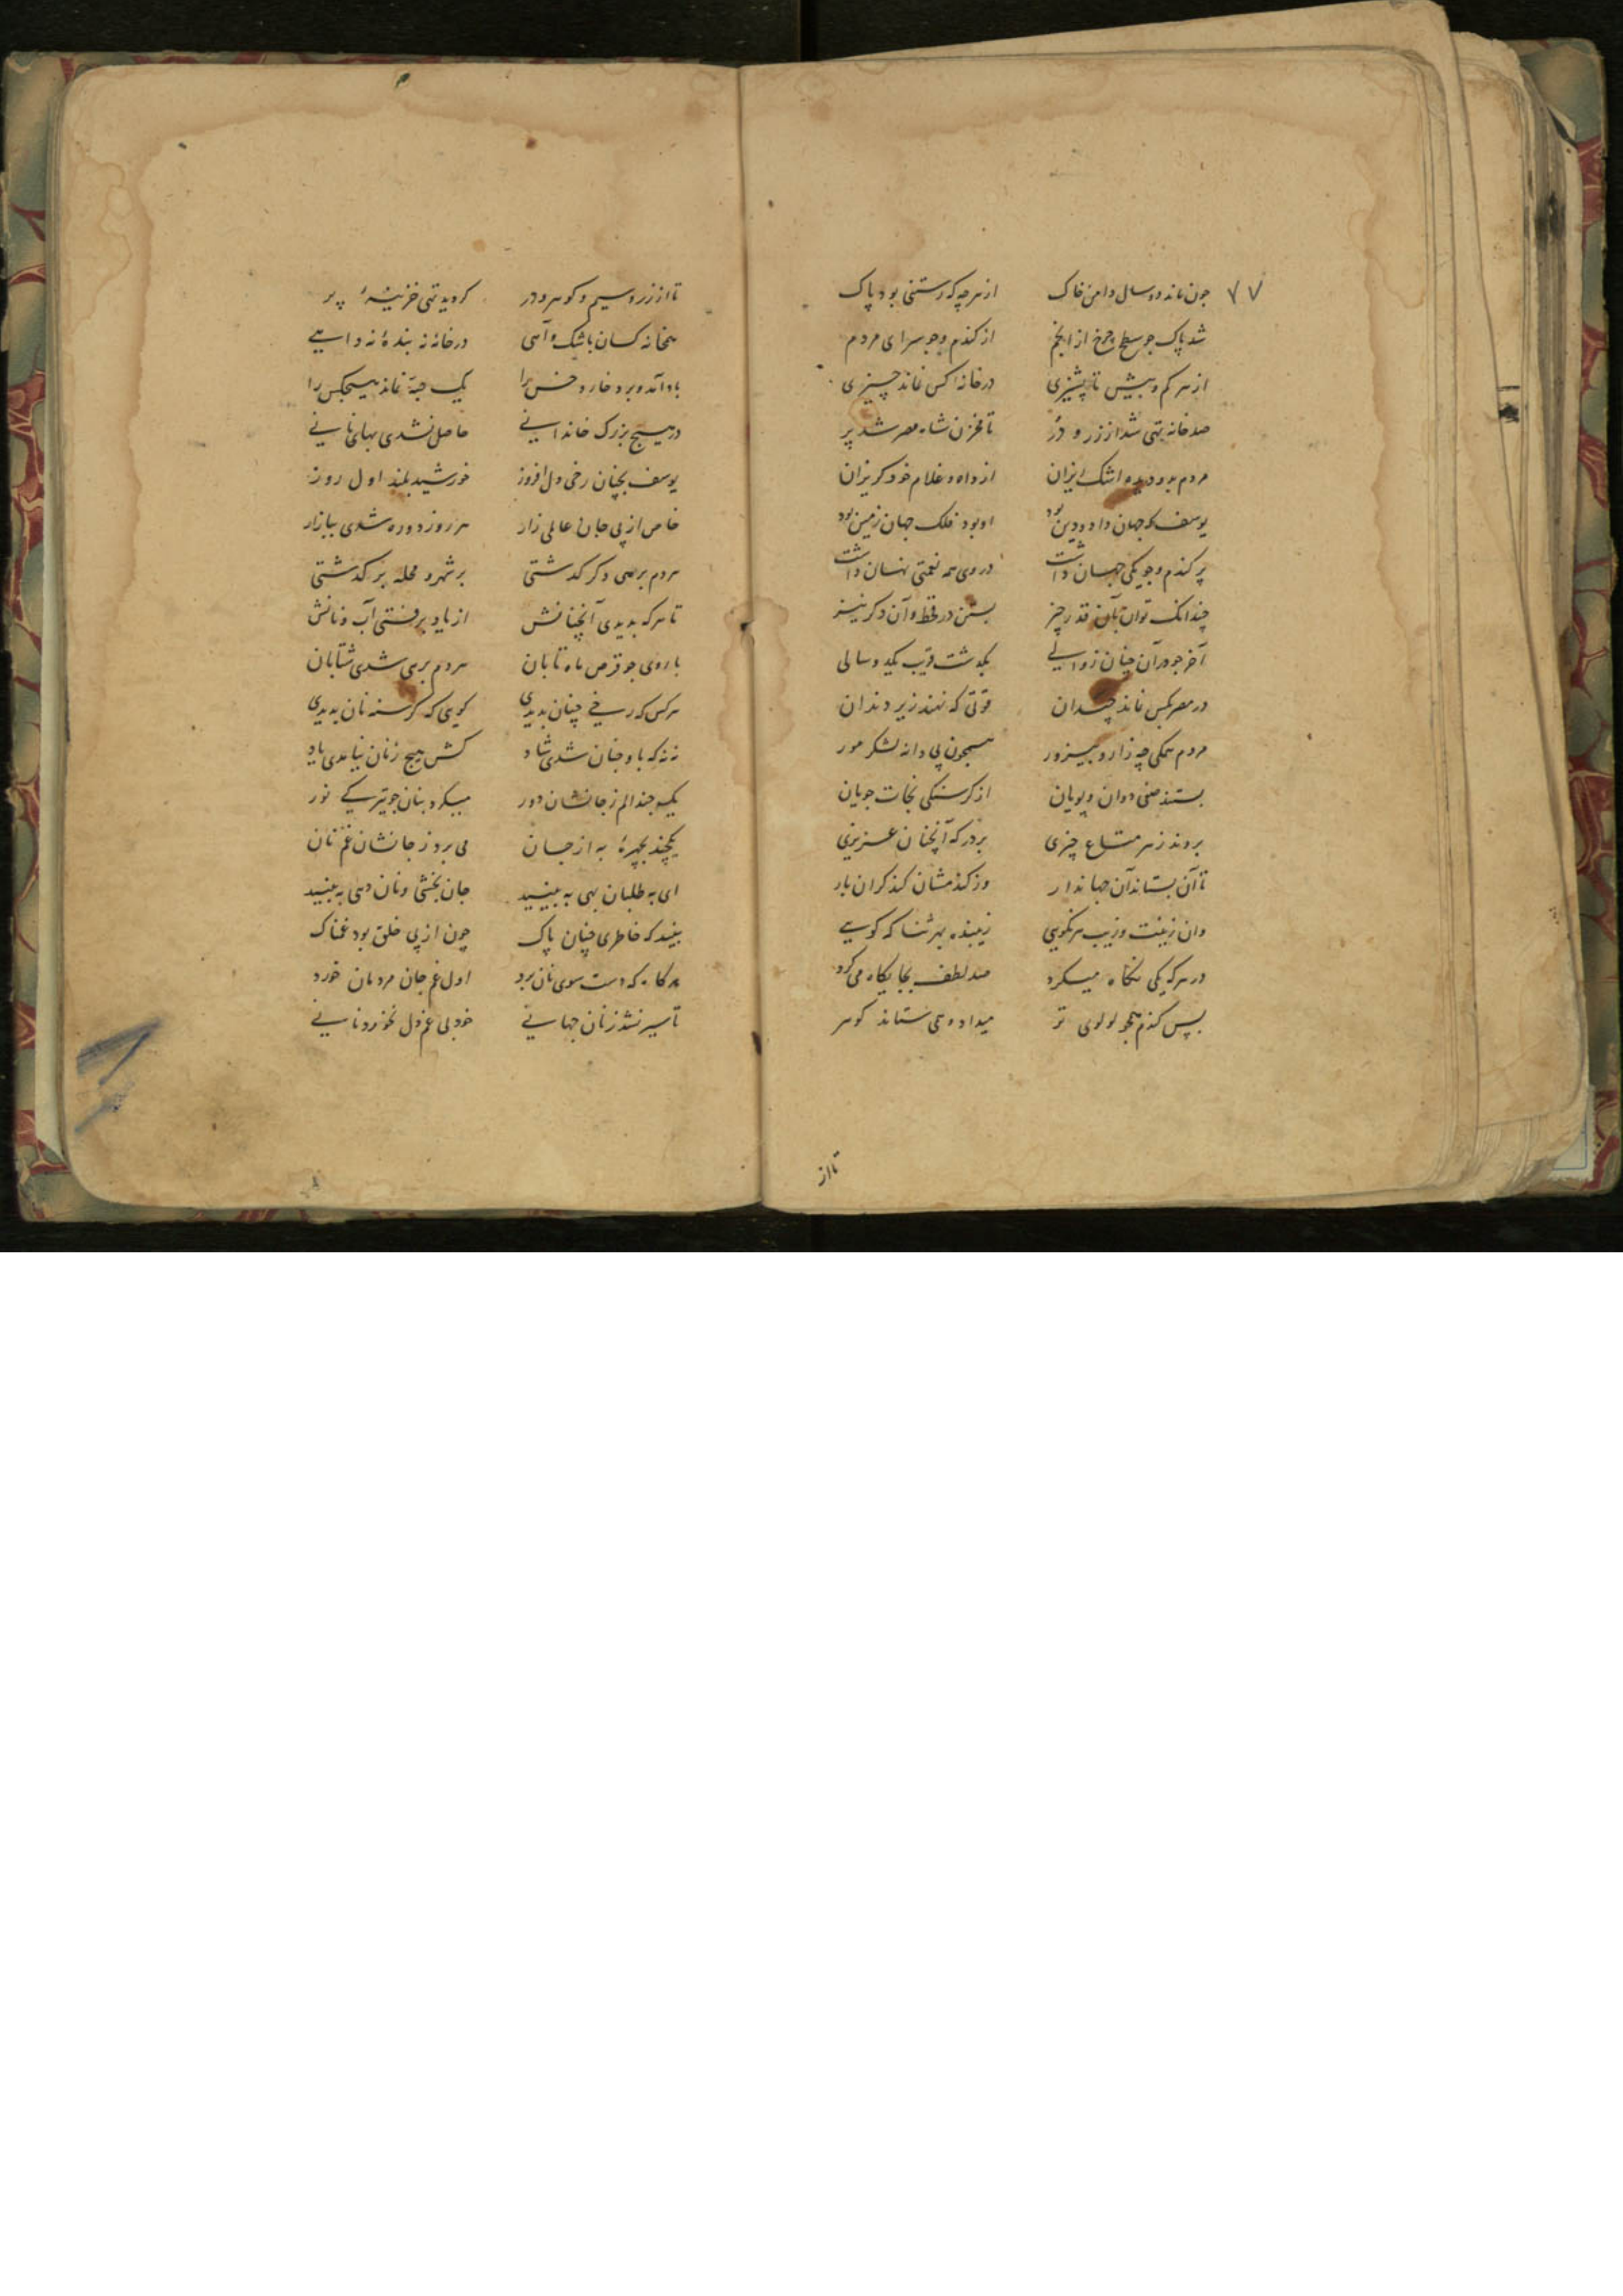 ۷۷ جون ماند دو سال دامن خاک از هر چه که رستنی بود پاک
شد پاک جو سطح چرخ از انجم از کندم و جو سرای مردم
از هر کم و بیش تا پشیزی در خانه کس نماند چیزی
صد خانه تهی شد از زر و در تا مخزن شاه مصر شد پر
مردم بدو دیده اشک ریزان از داه و غلام خود کریزان
یوسف که جهان داد و دین بود او بود فلک جهان زمین بود
پر کندم و جو یکی جهان داشت در وی همه نعمتی نهان داشت
چندانک توان بآن قدر چیز بستن در قحط و آن دکر نیز
آخر جو در آن چنان زوالی بکدشت قریب یکدو سالی
در مصر بکس نماند چندان قوتی که نهند زیر دندان
مردم همکی چه زار و بیزور همچون پی دانه لشکر مور
بستند صفی دوان و پویان از کرسنکی نجات جویان
بردند ز هر متاع چیزی بر درکه آنچنان عزیزی
تا آن بستاند آن جهاندار وز کندمشان کند کران بار
وان زینت و زیب هر نکویی زیبنده بهر ثنا که کویی
در هر که یکی نکاه میکرد صد لطف بجایکاه می کرد
بس کندم همجو لولوی تر میداد و همی ستاند کوهر
تا از
تا از زر و سیم و کوهر و در کردید تهی خزینهٔ پر
بنخانه کسان باشک و آهی در خانه نه بندهٔ نه داهی
باد آمد و برد خار و خس را یک حبه نماند هیچکس را
در هیچ بزرک خاندانی حاصل نشدی بهای نانی
یوسف بچنان رخی دل افروز خورشید بلند اول روز
خاص از پی جان عالمی زار هر روز دو ره شدی ببازار
مردم بر هر دکر کدشتی بر شهر و محله بر کدشتی
تا هر که بدیدی آنچنانش از یاد برفتی آب و نانش
با روی جو قرص ماه تابان مردم بر وی شدی شتابان
هر کس که رخی چنان بدیدی کویی که کرسنه نان بدیدی
نه نه که باو چنان شدی شاد کش هیچ ز نان نیامدی یاد
یکچند الم ز جانشان دور میکرد بنان جو تیرکی نور
یکچند بچهرهٔ به از جان می برد ز جانشان غم نان
ای به طلبان بهی به بینید جان بخشی و نان دهی به بینید
بینید که خاطری چنان پاک چون از پی خلق بود غمناک
هر کاه که دست سوی نان برد اول غم جان مردمان خورد
تا سیر نشد ز نان جهانی خود بی غم دل نخورد نانی